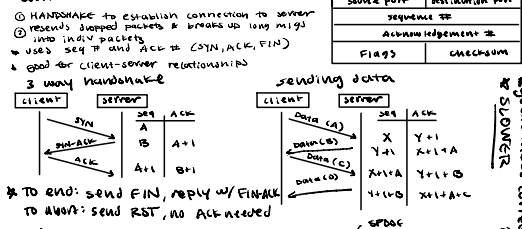 ① HANDSHAKE to establish connection to server
② resends dropped packets & breaks up long msgs
into indiv packets
* uses seq # and Ack # (SYN, ACK, FIN)
* good for client-server relationships
source port destination port
sequence #
Acknowledgement #
Flags checksum
3 way handshake
client server
seq Ack
SYN
A
SYN-ACK
B A+1
ACK
A+1 B+1
sending data
client server
seq ACK
Data (A)
X Y+1
Data (B)
Y+1 X+1+A
Data (C)
X+1+A Y+1+B
Data (D)
Y+1+B X+1+A+C
* SLOWER
* TO end: send FIN, reply w/ FIN-ACK
TO abort: send RST, no Ack needed